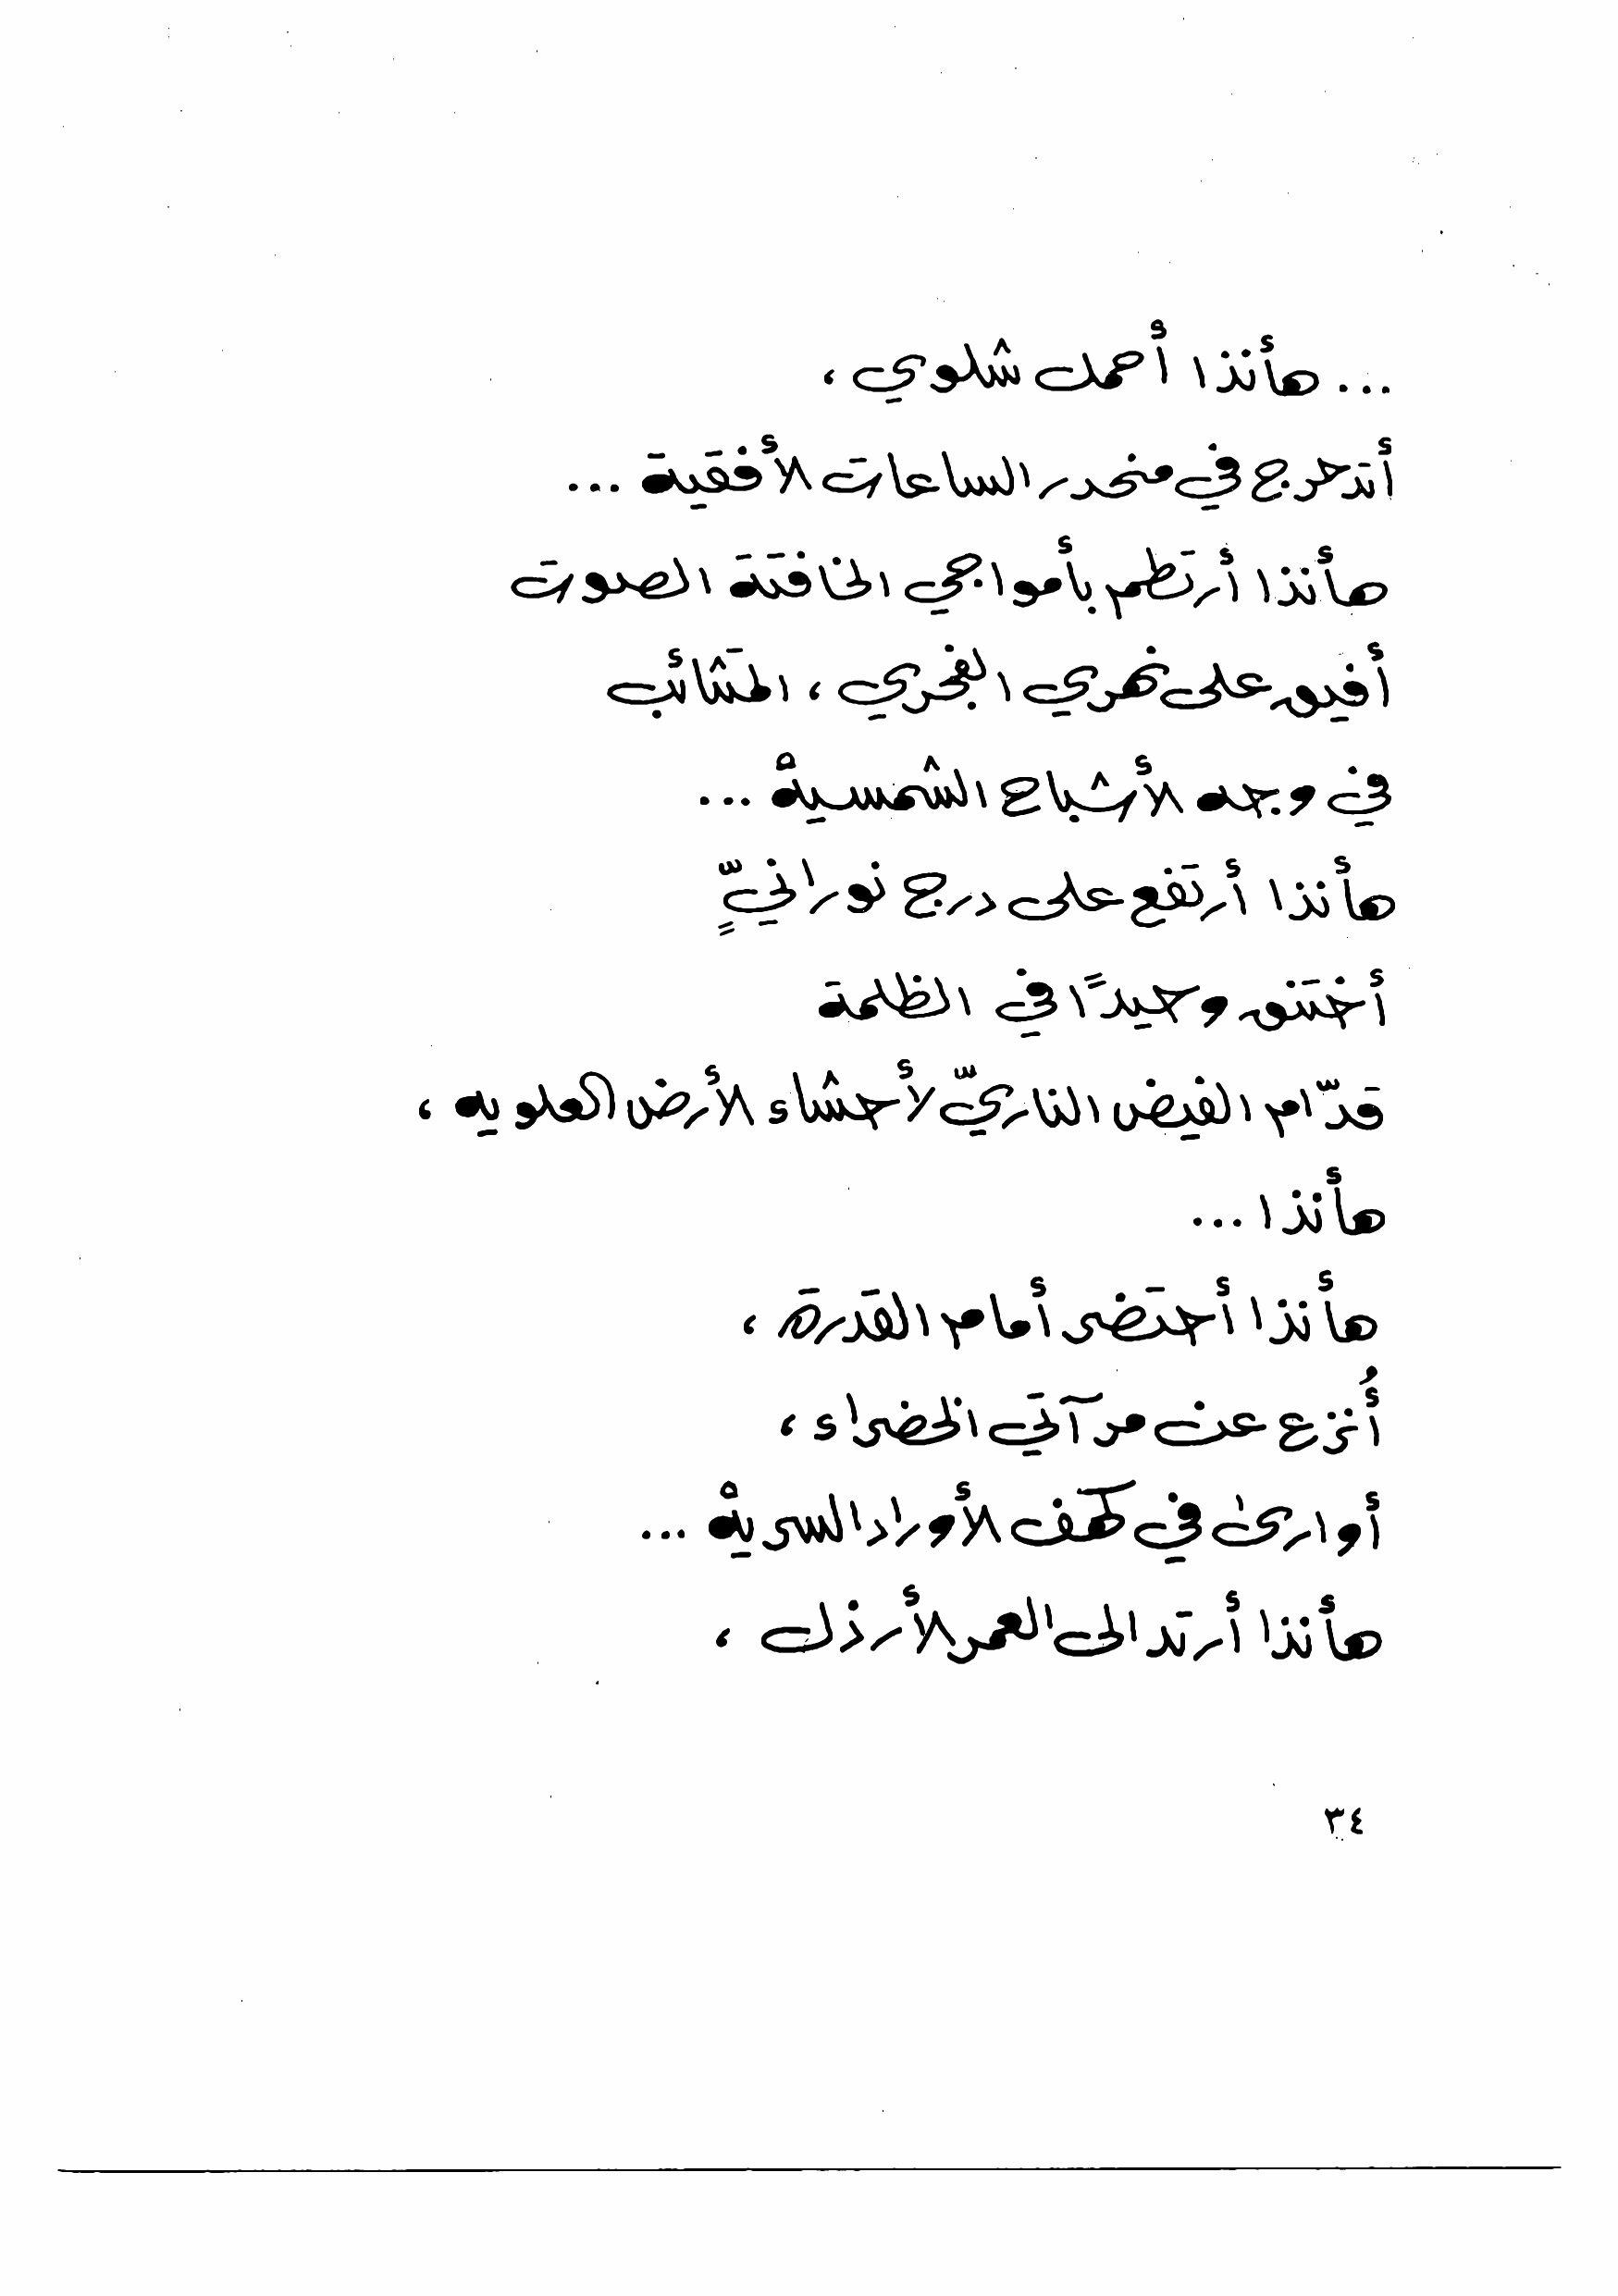 ... هأنذا أحمل شلوي ،
أتدحرج في منحدر الساعات الأفقية ...
هأنذا أرتطم بأمواجي الخافتة الصوت
أفيق على نهري الفجري ، المتثائب
في وجه الأشباح الشمسيهْ ...
هأنذا أرتفع على درج نورانيٍّ
أختنق وحيدًا في الظلمة
قدّام الفيض الناريّ لأحشاء الأرض العلويه ،
هأنذا ...
هأنذا أحتضر أمام القدرة ،
أُنزع عن مرآتي الخضراء ،
أوارىٰ في كهف الأوراد السريهْ ...
هأنذا أرتد الى العمر الأرذل ،
٣٤